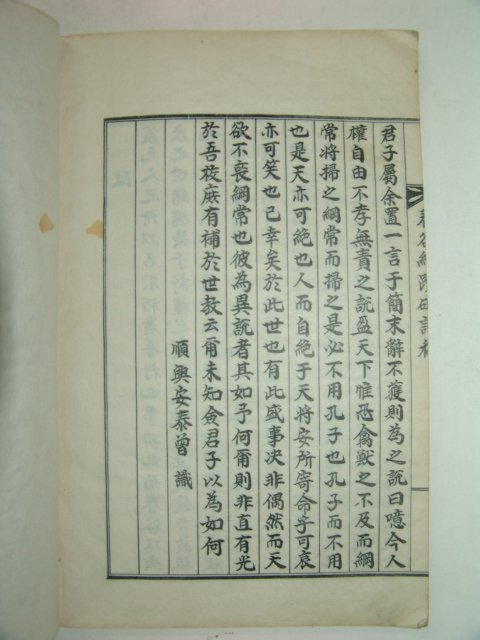 君子屬余置一言于簡末辭不獲則爲之說曰噫今人
權自由不孝無責之說盈天下惟恐禽獸之不及而綱
常將掃之綱常而掃之是必不用孔子也孔子而不用
也是天亦可絶也人而自絶于天將安所寄命乎可哀
亦可笑也已幸矣於此世也有此盛事決非偶然而天
欲不喪綱常也彼爲異說者其如予何爾則非直有光
於吾校庶有補於世教云爾未知僉君子以爲如何
順興安泰曾 識